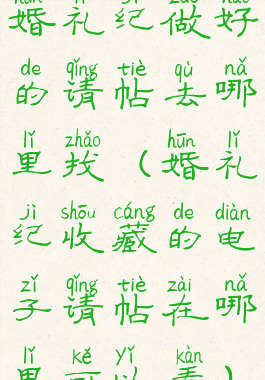 婚礼纪做好
de qǐng tiè qù nǎ
的请帖去哪
lǐ zhǎo hūn lǐ
里找（婚礼
jì shōu cáng de diàn
纪收藏的电
zǐ qǐng tiè zài nǎ
子请帖在哪
lǐ kě yǐ kàn
里可以看）